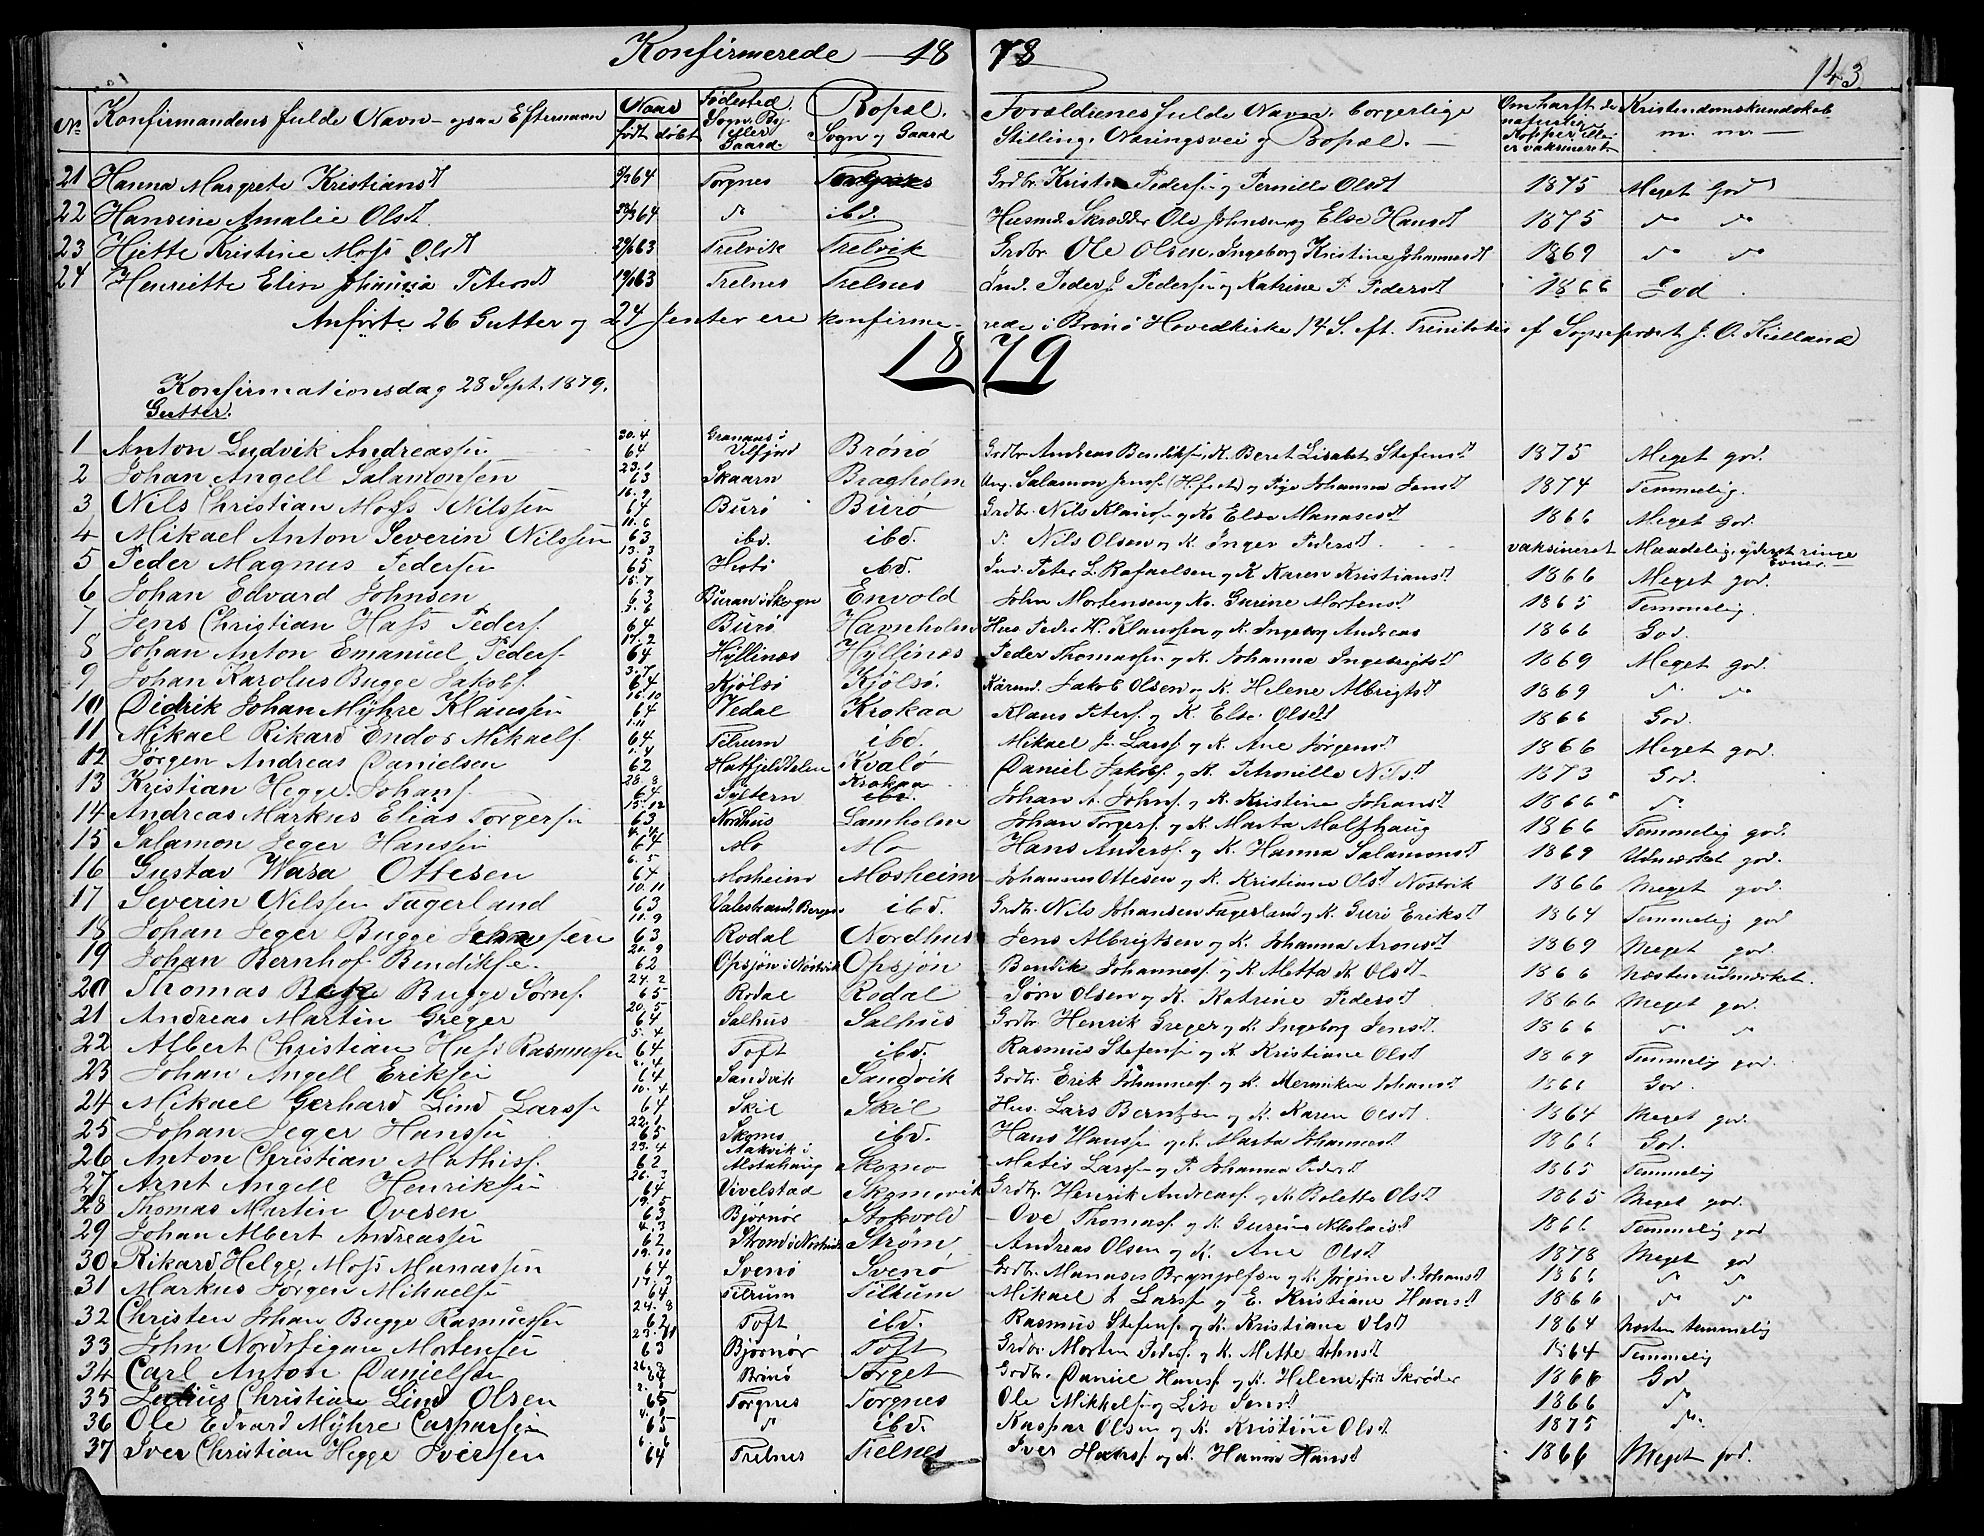 Konfirmerede 1878
143
No Konfirmandens fulde Navn - ogsaa Efternavn Naar født døbt Fødested. Sogn, By eller Gaard. Bopæl. Sogn og Gaard Forældrenes fulde Navn, borgerlige Stilling, Næringsvei og Bopæl. Om havft de naturlige Kopper eller er vaksineret Kristendomskundskab m. m.
21 Hanna Margrete Kristiansdt 64 Torgnes Torgnes Grdbr. Kristen Pedersen og Pernille Olsdt 1875 Meget god
22 Hansine Amalie Olsdt 64 " ibd. Husmd. Skrædder Ole Johnsen og Else Hansdt 1875 " "
23 Hjette Kristine Moss Olsdt 63 Trelvik Trelvik Grdbr. Ole Olsen, Ingeborg Kristine Johannesdt 1869 " "
24 Henriette Elise Petersdt 63 Trelnes Trelnes Ind. Peder J. Pedersen og Katrine P. Pedersdt 1866 God.
Anførte 26 Gutter og 24 Jenter ere konfirmerede i Brønø Hovedkirke 14 S. eft. Trinitatis af Sognepræst J. O. Kielland
1879
Konfirmationsdag 28 Sept. 1879.
Gutter.
1 Anton Ludvik Andreassen 30.4 64 Vilfjord Brønø Grdbr. Andreas Bendiksen, K. Beret Lisabet Stefensdt 1875 Meget god.
2 Johan Angell Salamonsen 23.1 63 Skaarn Bragholm Ung. Salamon Jens. og Pige Johanna Jensdt 1874 Temmelig.
3 Nils Christian Moss Nilssen 16.9 64 Burø Burø Grdbr. Nils Klaus. og K. Else Manasesdt 1866 Meget god.
4 Mikael Anton Severin Nilssen 11.6 63 ibd. ibd. " Nils Olsen og K. Inger Pedersdt vaksineret Maadelig, yderst ringe Evner.
5 Peder Magnus Pedersen 13.3 65 Hestø ibd. Ind. Peter L. Rafaelsen og K. Karen Kristiansdt 1866 Meget god.
6 Johan Edvard Johnsen 15.7 63 Buran i Skogn Envold John Mortensen og K. Gurine Mortensdt 1865 Temmelig.
7 Jens Christian Hass Peders. 64 Burø Havnholm Hus. Peder H. Klaussen og K. Ingeborg Andreas 1866 God.
8 Johan Anton Emanuel Peders. 17.2 64 Hyllinæs Hyllinæs Peder Thomassen og K. Johanna Ingebrigtsdt 1869 Meget god.
9 Johan Karolus Bugge Jakobs. 64 Kjølsø Kjølsø. Jakob Olsen og K. Helene Albrigtsdt 1869 " "
10 Didrik Johan Myhre Klaussen 16.10 64 Vedal Krokaa Klaus Peters. og K. Else Olsdt 1866 God.
11 Mikael Rikard Endos Mikaels. 1.11 64 Tilrum ibd. Mikael J. Larss. og K. Ane Jørgensdt 1866 Meget god.
12 Jørgen Andreas Danielsen 62 Hatfjelddalen Kvalø Daniel Jakobs. og K. Petronille Nilsdt 1873 God.
13 Kristian Hegge Johans. 28.8 64 Syltern Krokaa Johan A. Johns. og K. Kristine Johansdt 1866 "
14 Andreas Markus Elias Torgersen 15.12 63 Nordhus Lamholm Johan Torgers. og K. Marta Moltzhaug 1866 Temmelig god.
15 Salamon Jeger Hanssen 64 Mo Mo Hans Anders. og K. Hanna Salamonsdt 1869 Udmærket god.
16 Gustav Wasa Ottesen 6.5 64 Mosheim Mosheim Johannes Ottesen og K. Kristiane Olsdt Nostvik 1866 Meget god.
17 Severin Nilssen Fagerland 10.11 63 Valestrand, Bergen ibd. Grdbr. Nils Johansen Fagerland og K. Guri Eriksdt 1864 Temmelig god
18 Johan Jeger Bugge Jenssen 11.9 63 Rodal Nordhus Jens Albrigtsen og K. Johanna Aronsdt 1869 Meget god.
19 Johan Bernhof Bendikse. 20.9 62 Opsjøn i Nøstvik Opsjøn Bendik Johannes. og K. Metta K. Olsdt 1866 Næsten udmærket.
20 Thomas Bugge Sørns. 24.2 65 Rodal Rodal Sørn Olsen og K. Katrine Pedersdt 1866 Meget god.
21 Andreas Martin Greger 20.5 64 Salhus Salhus Grdbr. Henrik Greger og K. Ingeborg Jensdt. 1866 " "
22 Albert Christian Hass Rasmussen 5.4 64 Toft ibd. Rasmus Stefensen og K. Kristiane Olsdt 1869 Temmelig god.
23 Johan Angell Eriksen 64 Sandvik Sandvik Grdbr. Erik Johannes. og K. Merenike Johansdt 1866 God.
24 Mikael Gerhard Lind Larss. 10.4 64 Skil Skil Hus. Lars Berntzen og K. Karen Olsdt 1864 Meget god.
25 Johan Jeger Hanssen 22.1 65 Skomo ibd. Hans Hanss. og K. Marta Johannesdt 1866 God.
26 Anton Christian Mathiss. 23.4 62 Aakvik i Alstahaug Skomo Matis Larss. og P. Johanna Pedersdt 1865 Temmelig
27 Arnt Angell Henriksen 26.3 64 Vivelstad Skomovik Grdbr. Henrik Andreass. og K. Bolette Olsdt 1865 Meget god.
28 Thomas Martin Ovesen 19.5 63 Bjørnør Stokvold Ove Thomass. og K. Gurine Nikolaisdt 1866 Temmelig god
29 Johan Albert Andreassen 4.3 62 Strøm Andreas Olsen og K. Ane Olsdt 1878 Meget god
30 Rikard Helge Moss Manassen 19.10 64 Svenø Svenø Grdbr. Manases Brynjolfsen og K. Jørgine S. Johansdt 1866 " "
31 Markus Jørgen Mikaelse 64 Tilrum Tilrum Mikael J. Larss. og E. Kristiane Hansdt 1866 " "
32 Christen Johan Bugge Rasmussen 24.8 62 Toft ibd. Rasmus Stefens. og K. Kristiane Olsdt 1864 Næsten temmelig
33 John Nordstigan Mortensen 23.11 63 Bjørnør Toft Grdbr. Morten Peders. og K. Mette Johnsdt 1864 Temmelig
34 Carl Anton Danielsen Brønø Torget Grdbr. Daniel Hanss. og K. Helene, født Skrøder 1866 God
35 Julius Christian Lind Olsen 65 Torgnes Torgnes Ole Mikkels. og Lise Jensdt 1866 "
36 Ole Edvard Myhre Casparsen 65 " ibd. Kaspar Olsen og K. Kristine Olsdt 1875 "
37 Iver Christian Hegge Iversen 64 Trelnes Trelnes Iver Hanss. og K. Hanna Hansdt 1866 Meget god.